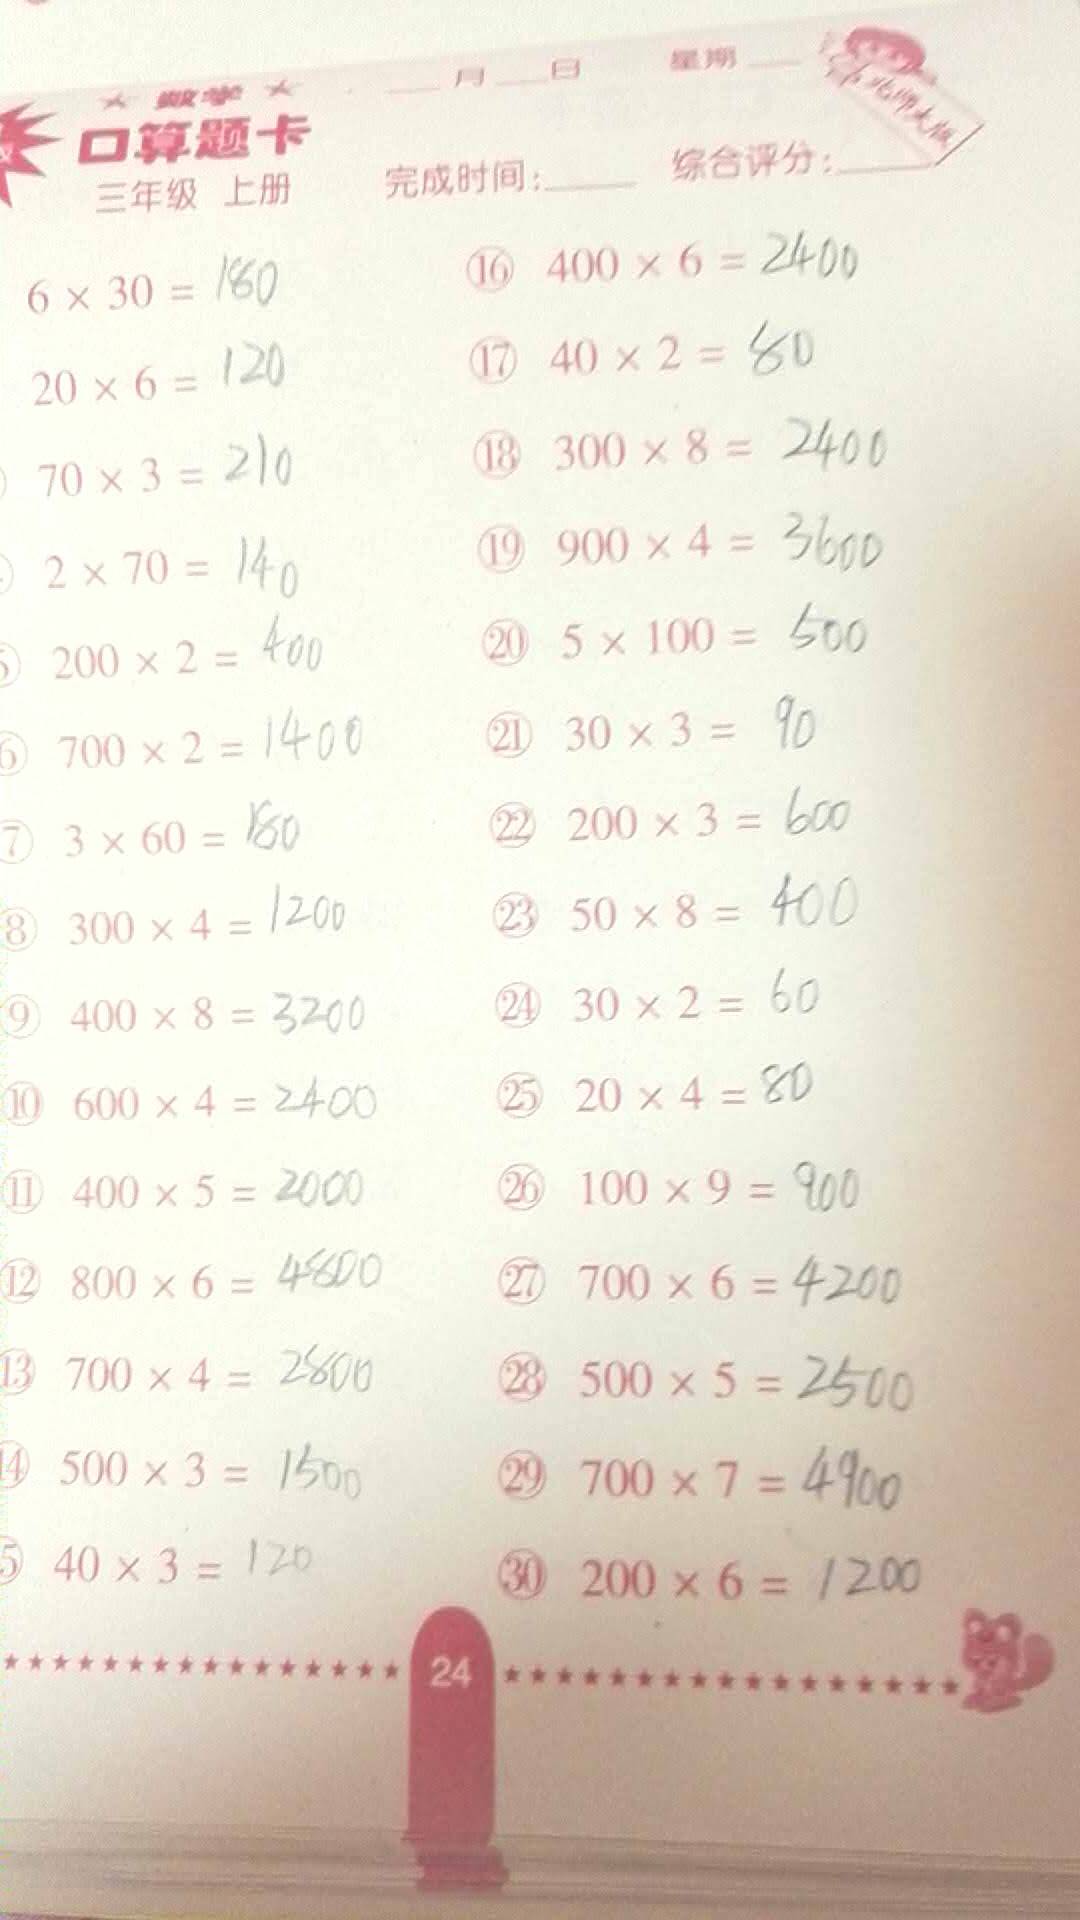 数学
月 日 星期
北师大版
口算题卡
三年级 上册 完成时间: 综合评分:
6 × 30 = 180
20 × 6 = 120
70 × 3 = 210
2 × 70 = 140
200 × 2 = 400
⑥ 700 × 2 = 1400
⑦ 3 × 60 = 180
⑧ 300 × 4 = 1200
⑨ 400 × 8 = 3200
⑩ 600 × 4 = 2400
⑪ 400 × 5 = 2000
⑫ 800 × 6 = 4800
⑬ 700 × 4 = 2800
⑭ 500 × 3 = 1500
⑮ 40 × 3 = 120
⑯ 400 × 6 = 2400
⑰ 40 × 2 = 80
⑱ 300 × 8 = 2400
⑲ 900 × 4 = 3600
⑳ 5 × 100 = 500
㉑ 30 × 3 = 90
㉒ 200 × 3 = 600
㉓ 50 × 8 = 400
㉔ 30 × 2 = 60
㉕ 20 × 4 = 80
㉖ 100 × 9 = 900
㉗ 700 × 6 = 4200
㉘ 500 × 5 = 2500
㉙ 700 × 7 = 4900
㉚ 200 × 6 = 1200
24